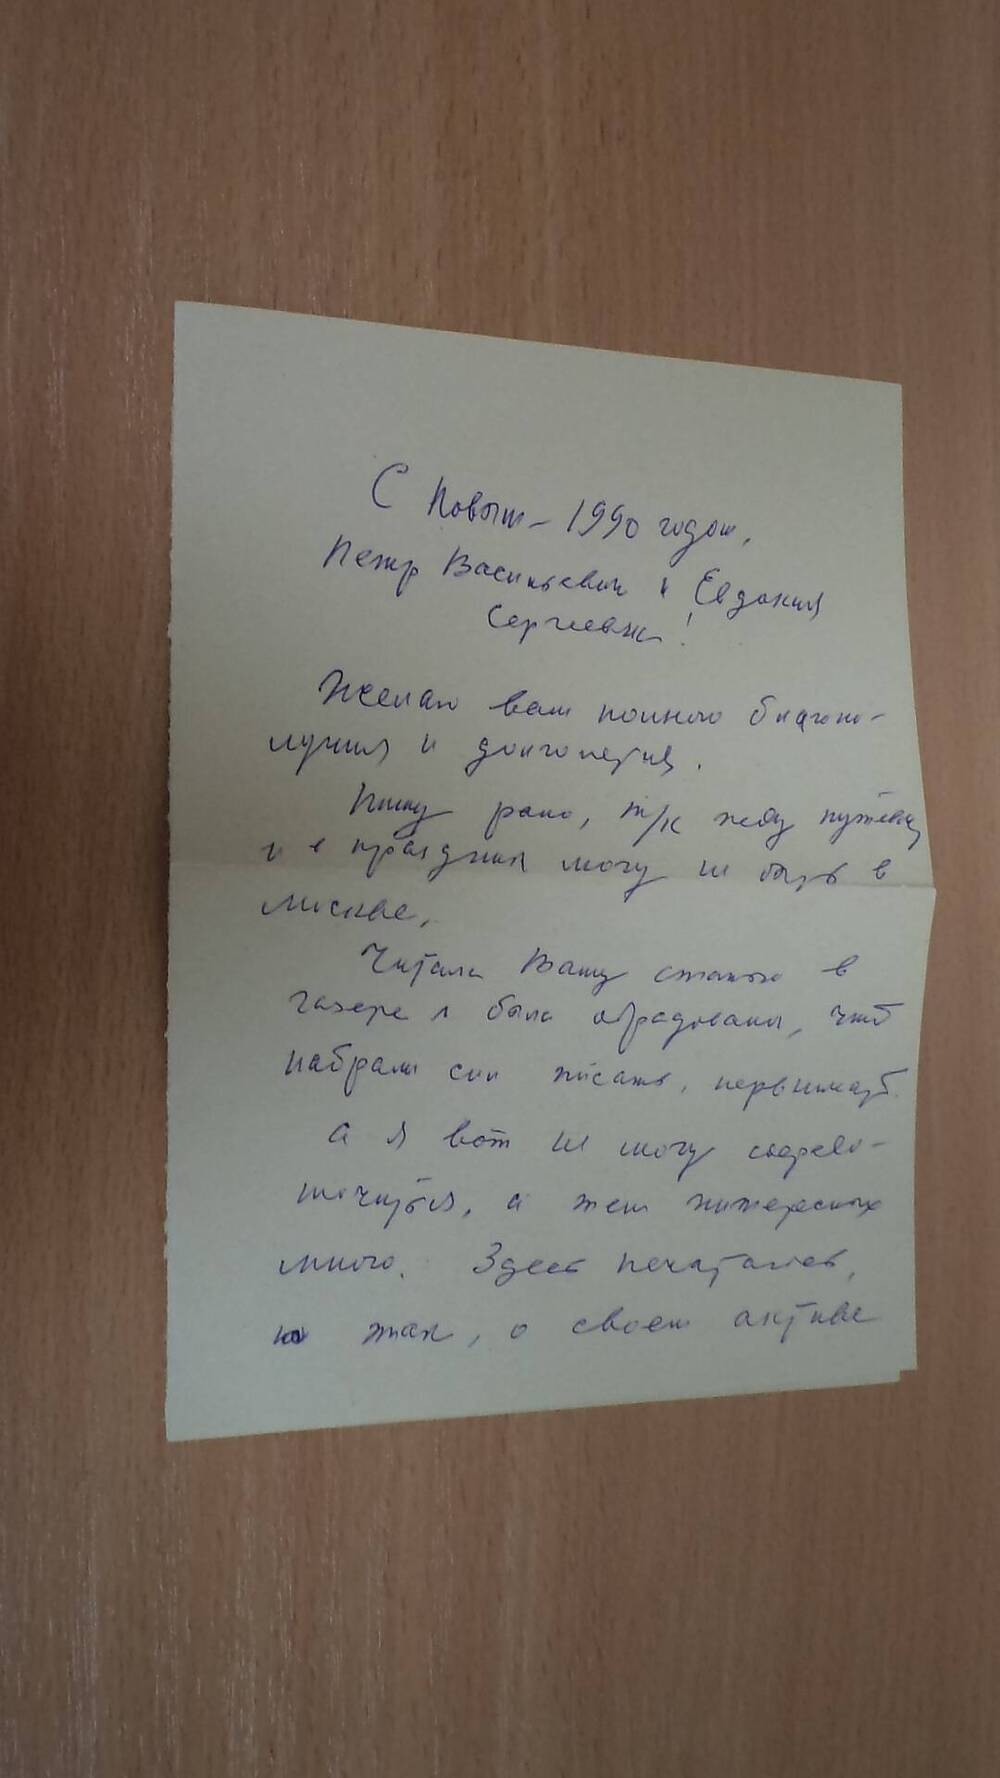 С Новым – 1990 годом,
Петр Васильевич и Евдокия
Сергеевна!
Желаю вам полного благопо-
лучия и долголетия.
Пишу рано, т/к жду путёвку
и в праздник могу не быть в
Москве.
Читала Вашу статью в
газете и была обрадована, что
набрали сил писать,
А я вот не могу сосредо-
точиться, а тем интересных
много. Здесь печаталась,
но так, о своем активе